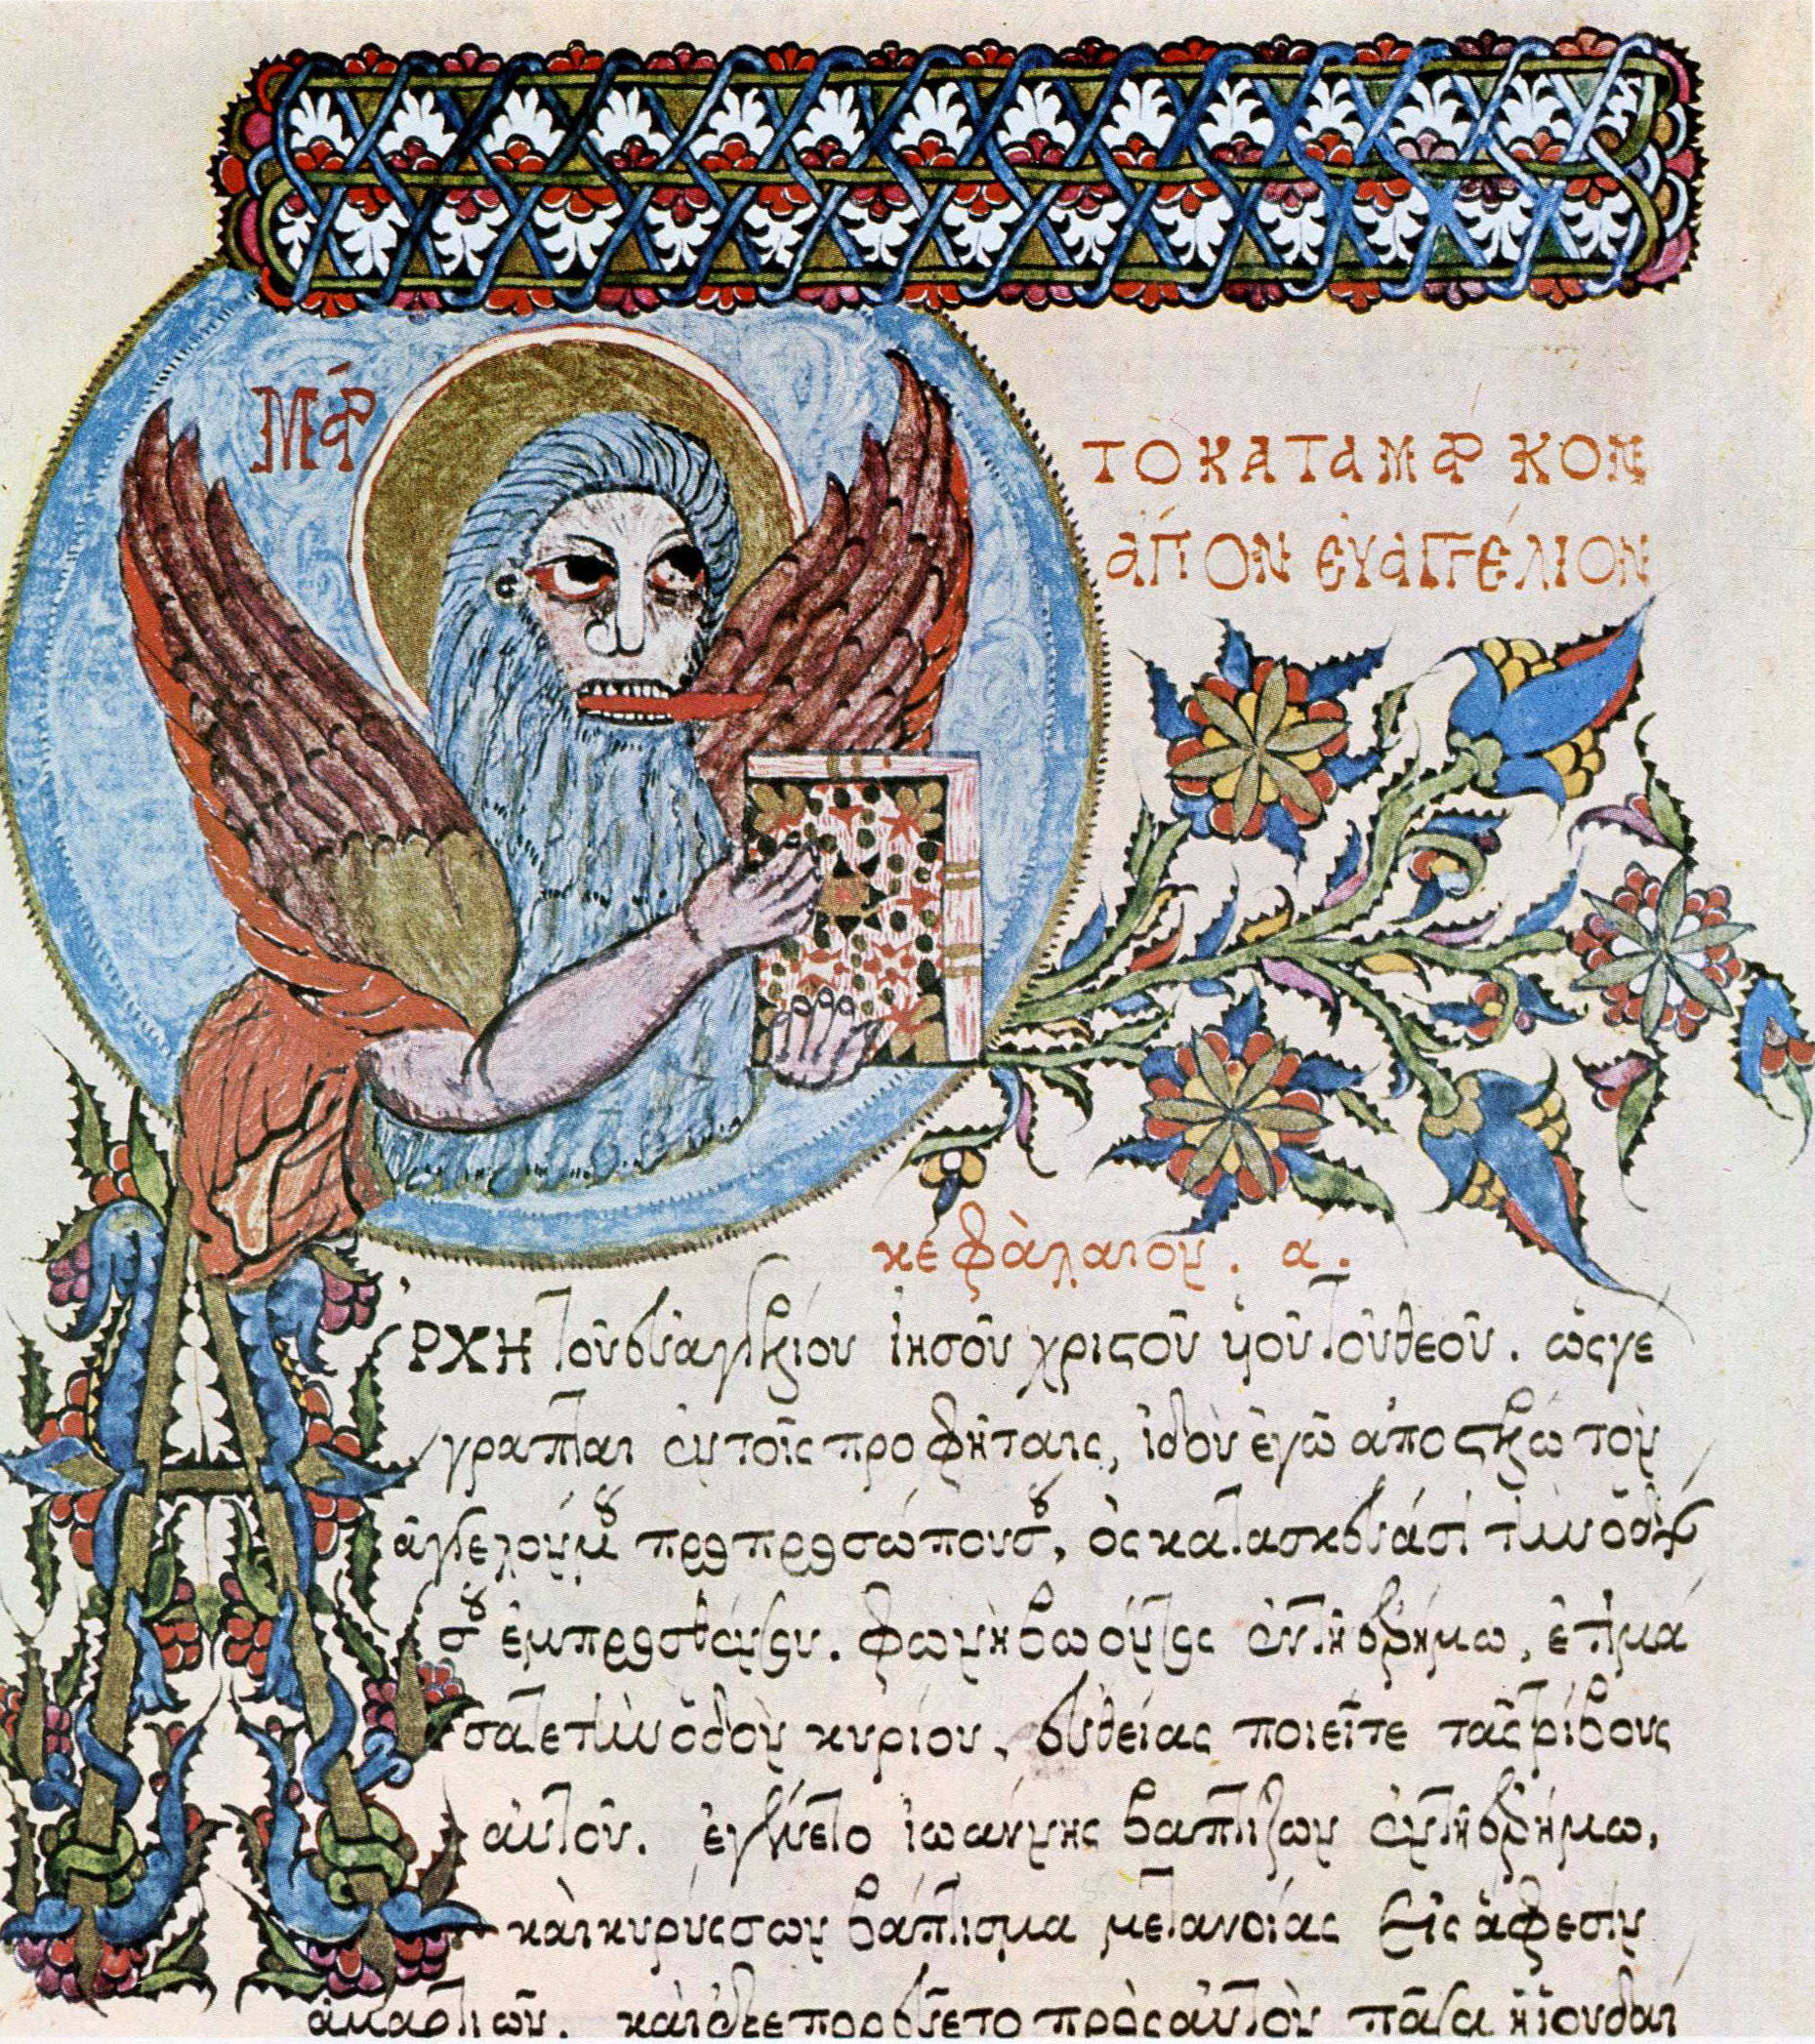 ΜΆΡ
ΤΟ ΚΑΤΑ ΜΑΡΚΟΝ
ἍΓΙΟΝ ἘΥΑΓΓΈΛΙΟΝ
κεφὰλαιον. α.
ἈΡΧΗ τοῦ εὐαγγελίου ἰησοῦ χριστοῦ ὑοῦ τοῦ θεοῦ. ὡς γέ
γραπται ἐν τοῖς προφήταις, ἰδοὺ ἐγὼ ἀποστέλλω τὸν
ἄγγελόν μου πρὸ προσώπου σου, ὃς κατασκευάσει τὴν ὁδόν
σου ἔμπροσθέν σου. φωνὴ βοῶντος ἐν τῇ ἐρήμω, ἑτοιμά
σατε τὴν ὁδὸν κυρίου, εὐθείας ποιεῖτε τὰς τρίβους
αὐτοῦ. ἐγένετο ἰωάννης βαπτίζων ἐν τῇ ἐρήμω,
καὶ κυρύσσων βάπτισμα μετανοίας εἰς ἄφεσιν
ἁμαρτιῶν. καὶ ἐξεπορεύετο πρὸς αὐτὸν πᾶσα ἡ ἰουδαι